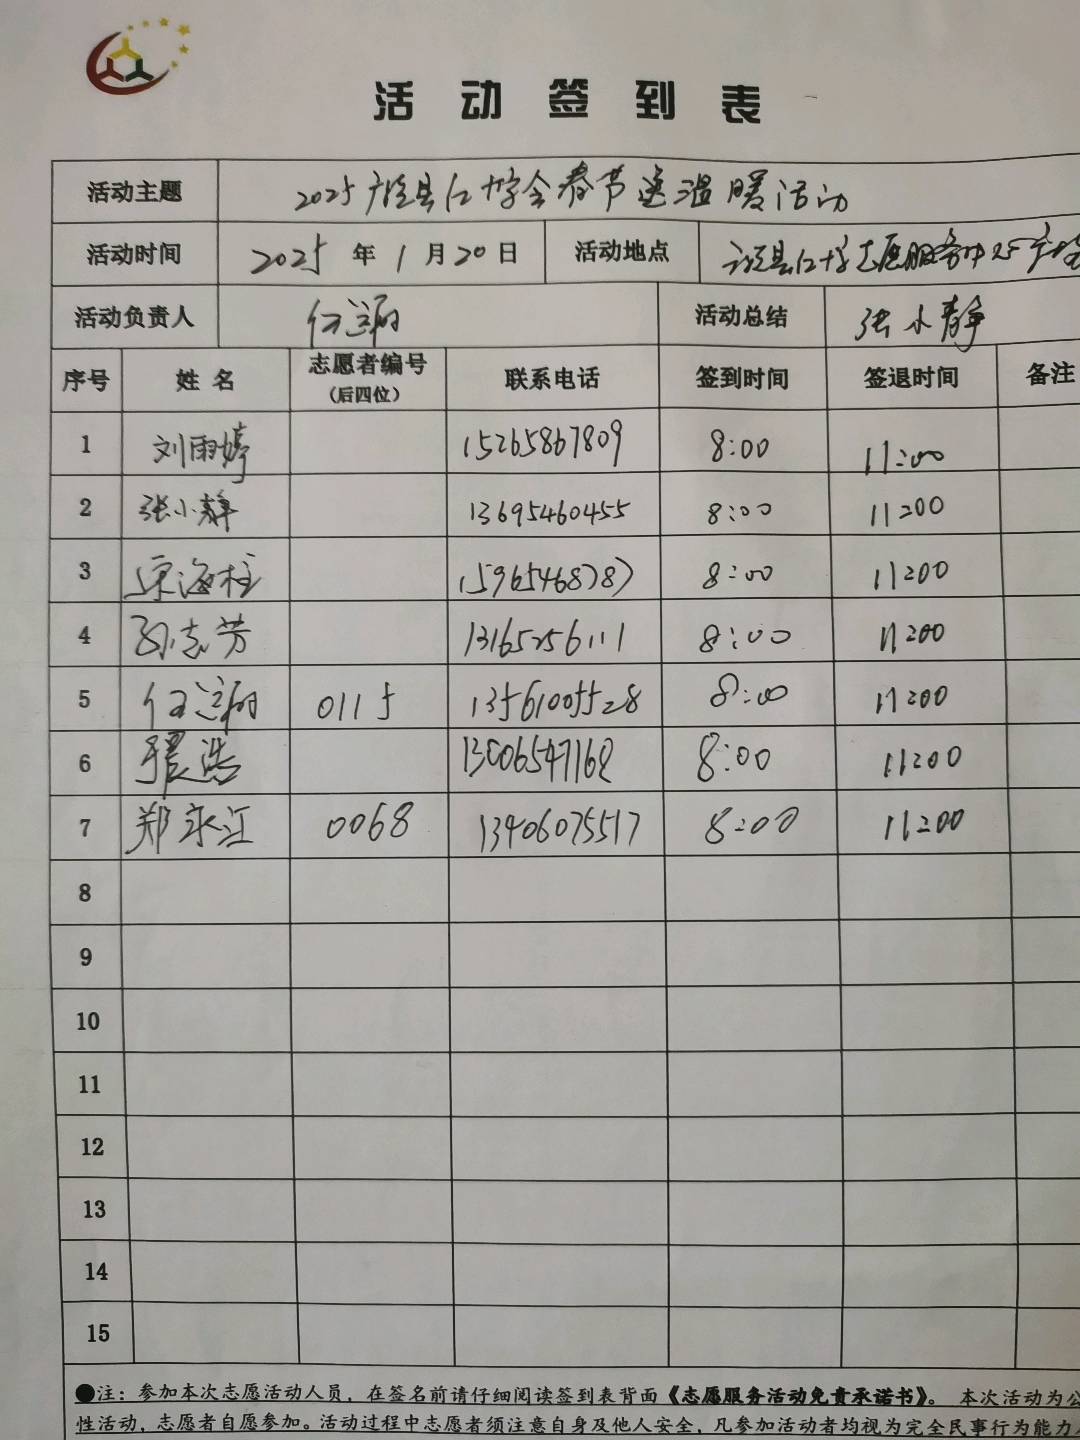 活动签到表
活动主题 2025广饶县红十字会春节送温暖活动
活动时间 2025年1月20日 活动地点 县红十字志愿服务中心
活动负责人 任兰 活动总结 张小静
序号 姓名 志愿者编号（后四位） 联系电话 签到时间 签退时间 备注
1 刘雨婷 15265867809 8:00 11:00
2 张小静 13695460455 8:00 11:00
3 海柱 15965468787 8:00 11:00
4 孙志芳 13165256111 8:00 11:00
5 任兰 0115 13561005528 8:00 11:00
6 浩 13006547168 8:00 11:00
7 郑永江 0068 13406075517 8:00 11:00
8
9
10
11
12
13
14
15
●注：参加本次志愿活动人员，在签名前请仔细阅读签到表背面《志愿服务活动免责承诺书》。 本次活动为公
性活动，志愿者自愿参加。活动过程中志愿者须注意自身及他人安全，凡参加活动者均视为完全民事行为能力